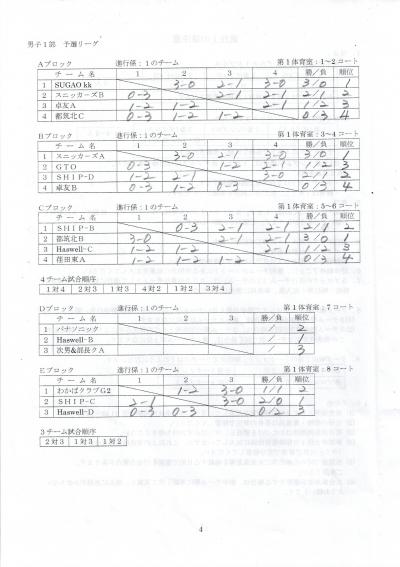 男子1部 予選リーグ
Aブロック 進行係：1のチーム 第1体育室：1~2コート
チーム名 1 2 3 4 勝／負 順位
1 SUGAO kk 3-0 2-1 3-0 3/0 1
2 スニッカーズB 0-3 2-1 2-1 2/1 2
3 卓友A 1-2 1-2 2-1 1/2 3
4 都筑北C 0-3 1-2 1-2 0/3 4
Bブロック 進行係：1のチーム 第1体育室：3~4コート
チーム名 1 2 3 4 勝／負 順位
1 スニッカーズA 3-0 2-1 3-0 3/0 1
2 GTO 0-3 1-2 2-1 1/2 3
3 SHIP-D 1-2 2-1 3-0 2/1 2
4 卓友B 0-3 1-2 0-3 0/3 4
Cブロック 進行係：1のチーム 第1体育室：5~6コート
チーム名 1 2 3 4 勝／負 順位
1 SHIP-B 0-3 2-1 2-1 2/1 2
2 都筑北B 3-0 2-1 2-1 3/0 1
3 Haswell-C 1-2 1-2 2-1 1/2 3
4 荏田東A 1-2 1-2 1-2 0/3 4
4チーム試合順序
1対4 2対3 1対3 4対2 1対2 3対4
Dブロック 進行係：1のチーム 第1体育室：7コート
チーム名 1 2 3 勝／負 順位
1 パナソニック / 2
2 Haswell-B / 1
3 次男&部長クA / 3
Eブロック 進行係：1のチーム 第1体育室：8コート
チーム名 1 2 3 勝／負 順位
1 わかばクラブG2 1-2 3-0 1/1 2
2 SHIP-C 2-1 3-0 2/0 1
3 Haswell-D 0-3 0-3 0/2 3
3チーム試合順序
2対3 1対3 1対2
4